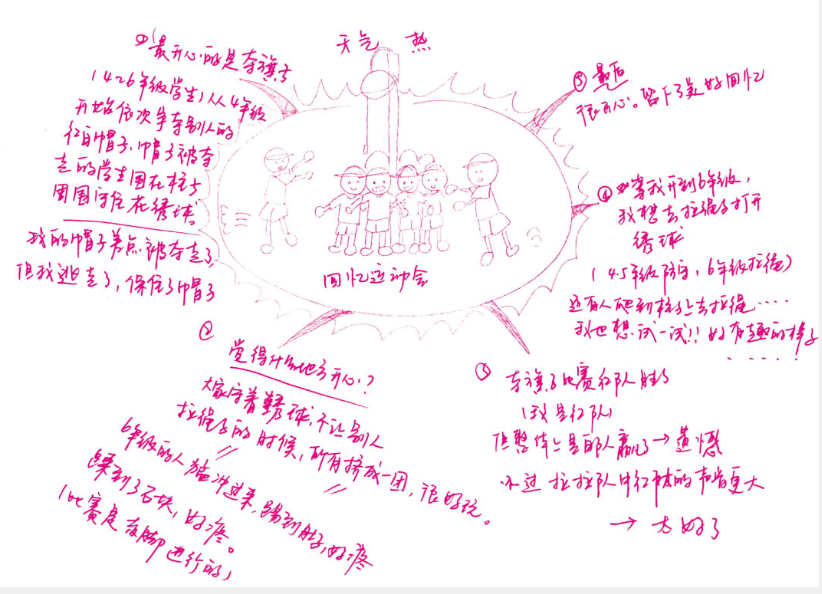 天气 热
① 最开心的是夺旗子
（4-6年级学生）从4年级
开始依次争夺别人的
红白帽子，帽子被夺
走的学生围在柱子
周围守住花绣球
我的帽子差点被夺走了
但我逃走了，保住了帽子
回忆运动会
②
觉得什么地方开心？
大家守着绣球，不让别人
拉绳子的时候，所有挤成一团，很好玩。
6年级的人猛冲过来，踢到肚子，好疼
踩到了石块，好疼。
（比赛是 脚进行的）
③ 夺旗子比赛红队胜了
（我是红队）
但整体上是白队赢了→遗憾
不过 拉拉队中红队的声音更大
→ 太好了
④ 等我升到6年级，
我想去拉绳子打开
绣球
（4.5年级防守，6年级拉绳）
还有人爬到柱子上去拉绳……
我也想试一试!! 好有趣的样子
……
⑤ 最后
很开心。留下了美好回忆